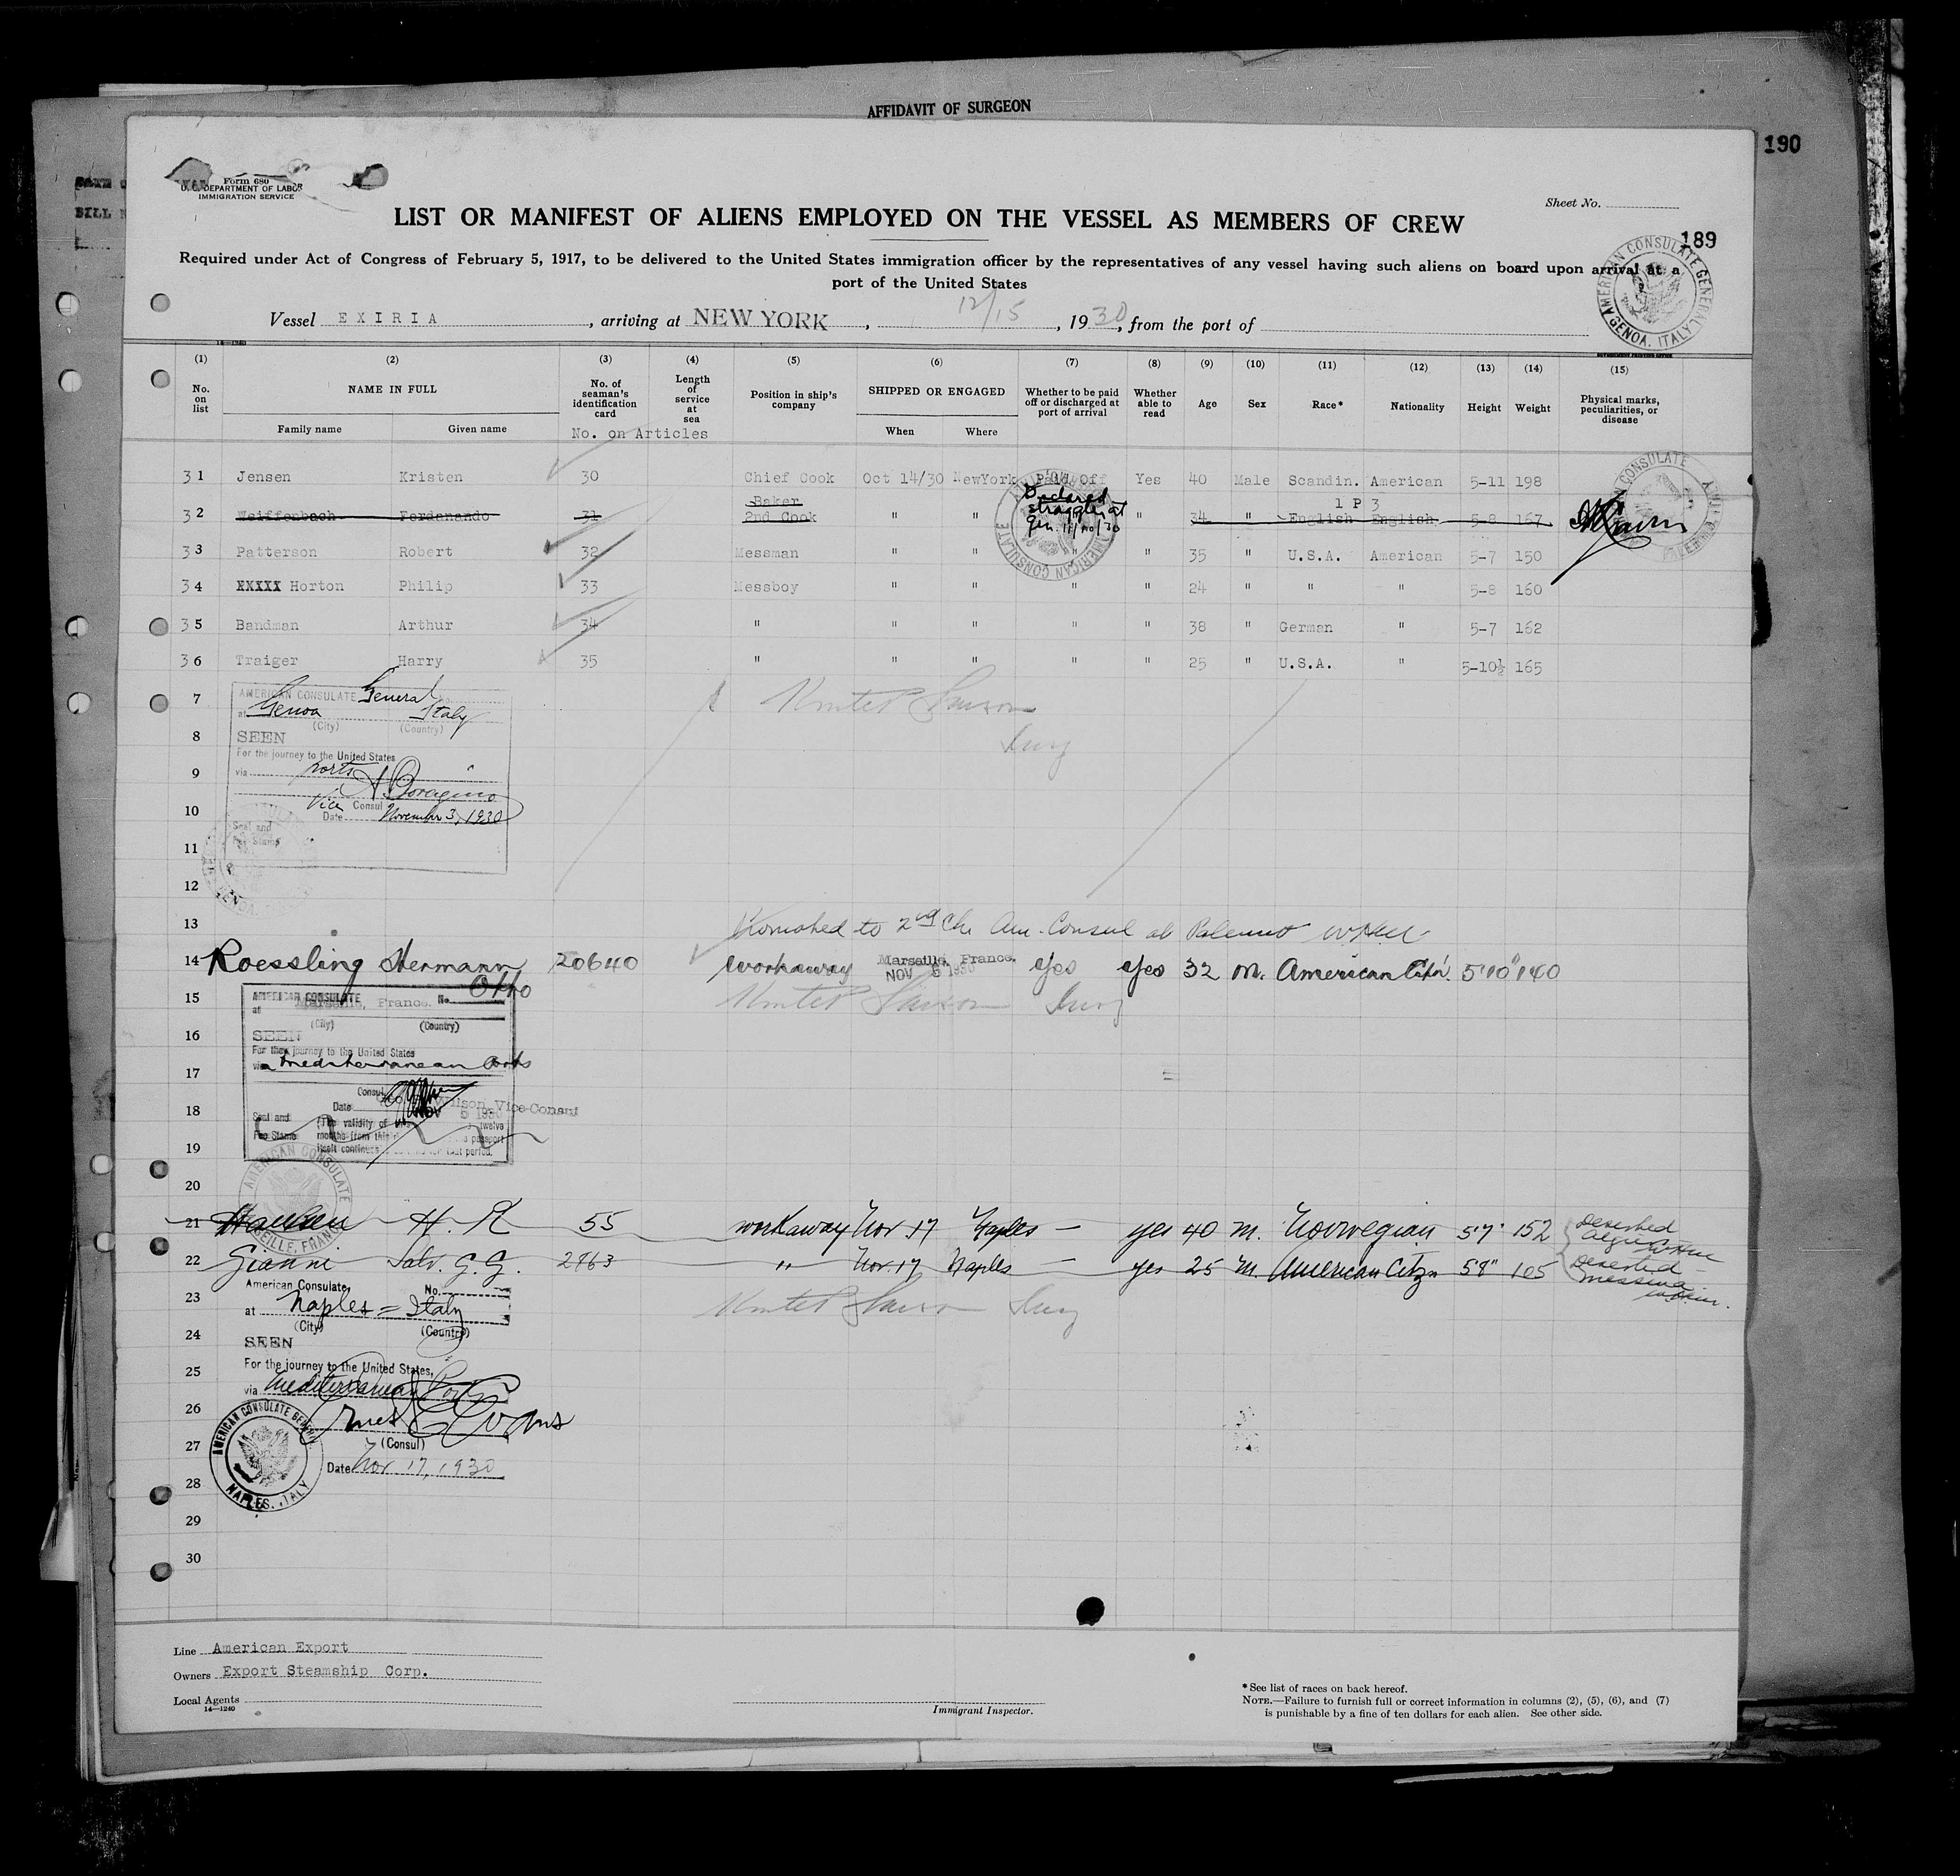 AFFIDAVIT OF SURGEON
190
Form 680
U. S. DEPARTMENT OF LABOR
IMMIGRATION SERVICE
Sheet No.
LIST OR MANIFEST OF ALIENS EMPLOYED ON THE VESSEL AS MEMBERS OF CREW
189
Required under Act of Congress of February 5, 1917, to be delivered to the United States immigration officer by the representatives of any vessel having such aliens on board upon arrival at a
port of the United States
AMERICAN CONSULATE GENERAL GENOA, ITALY
Vessel EXIRIA, arriving at NEW YORK, 12/15, 1930, from the port of
14-1240
(1) (2) (3) (4) (5) (6) (7) (8) (9) (10) (11) (12) (13) (14) (15)
No. on list NAME IN FULL No. of seaman's identification card Length of service at sea Position in ship's company SHIPPED OR ENGAGED Whether to be paid off or discharged at port of arrival Whether able to read Age Sex Race* Nationality Height Weight Physical marks, peculiarities, or disease
Family name Given name No. on Articles When Where
31 Jensen Kristen 30 Chief Cook Oct 14/30 NewYork Paid Off Yes 40 Male Scandin. American 5-11 198
Baker 1 P 3
32 Weiffenbach Ferdanando 31 2nd Cook " " Declared straggler at Gen. 11/10/30 " 34 " English English 5-8 167
33 Patterson Robert 32 Messman " " " " 35 " U.S.A. American 5-7 150
34 XXXXX Horton Philip 33 Messboy " " " " 24 " " " 5-8 160
35 Bandman Arthur 34 " " " " " 38 " German " 5-7 162
36 Traiger Harry 35 " " " " " 25 " U.S.A. " 5-10½ 165
7 AMERICAN CONSULATE General
at Genoa Italy
(City) (Country)
8 SEEN
For the journey to the United States
9 via ports
10 Vice Consul
Date November 3, 1930
Seal and
Fee Stamp
11
12
13 to 2nd Am. Consul at
14 Roessling Hermann Otto 20640 workaway Marseille, France. NOV 5 1930 yes yes 32 M. American Citz'n. 5'10" 140
15 AMERICAN CONSULATE No.
at Marseille, France.
(City) (Country)
16 SEEN
For the journey to the United States
17 via Mediterranean Ports
Consul
18 Date Wilson, Vice-Consul
NOV 5 1930
Seal and (The validity of twelve
Fee Stamp months from this a passport
19 itself continues period.
AMERICAN CONSULATE MARSEILLE, FRANCE
20
21 H. R 55 workaway Nov 17 Naples — yes 40 m. Norwegian 5'7" 152 Deserted
22 Gianni Salv. G. G. 2963 " Nov. 17 Naples — yes 25 M. American Citzn 5'8" 105 Deserted Messina
American Consulate, No.
23 at Naples = Italy
(City) (Country)
24 SEEN
For the journey to the United States,
25 via Mediterranean Ports
26 Evans
27 (Consul)
Date Nov. 17, 1930
28
AMERICAN CONSULATE GENERAL NAPLES, ITALY
29
30
Line American Export
Owners Export Steamship Corp.
Local Agents
14-1240
Immigrant Inspector.
*See list of races on back hereof.
NOTE.—Failure to furnish full or correct information in columns (2), (5), (6), and (7)
is punishable by a fine of ten dollars for each alien. See other side.